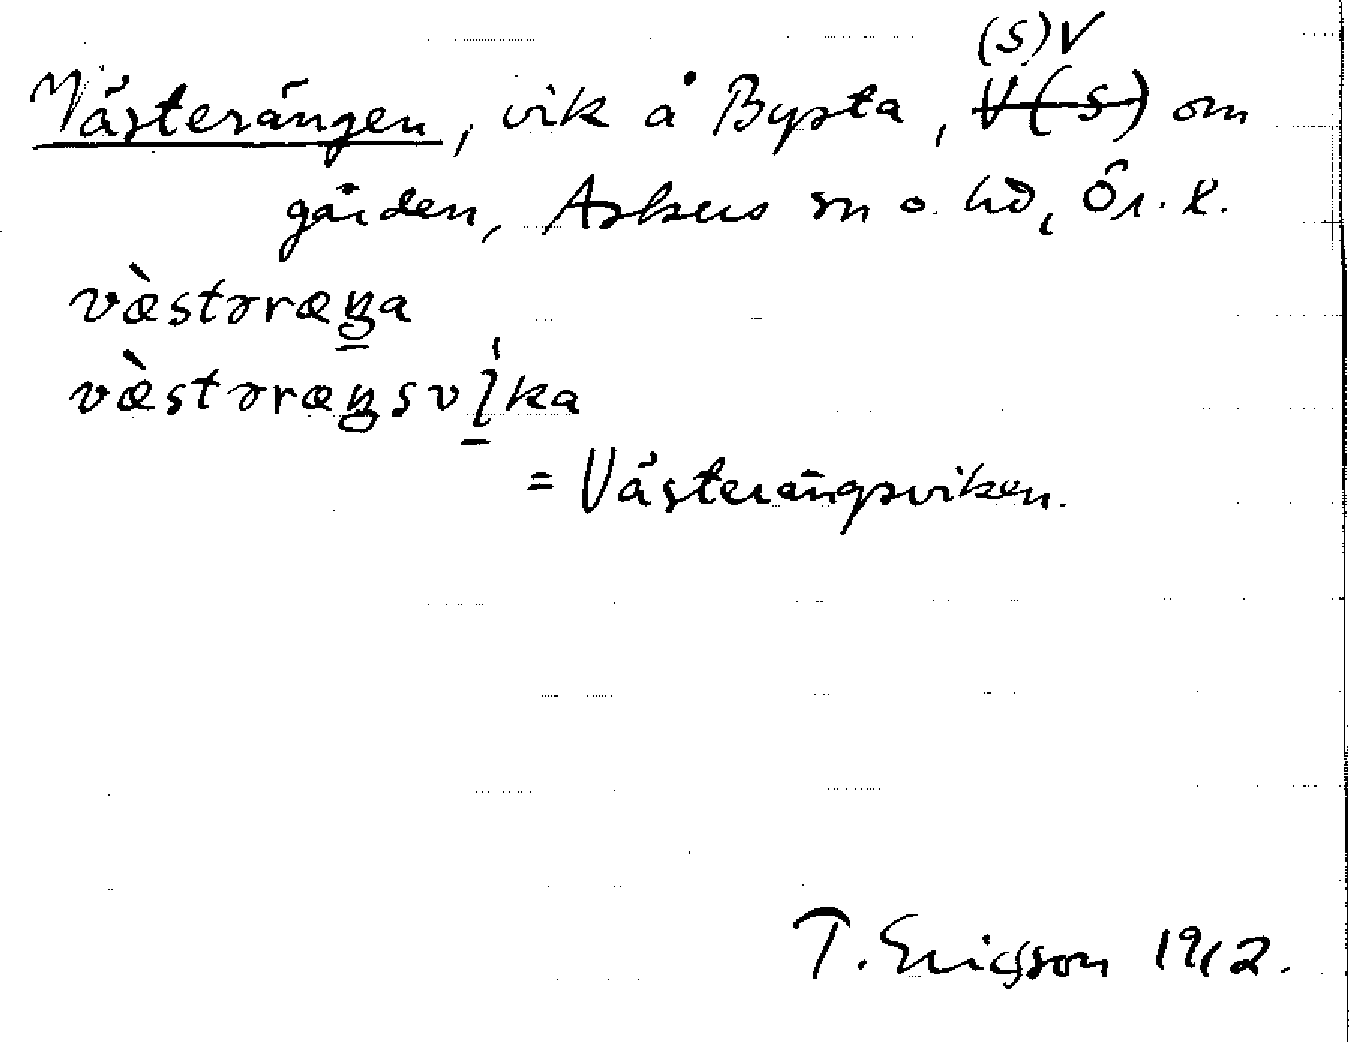 (S)V
Västerängen, vik å Bysta, V(S) om
gården, Askers sn o. hd, Ör. l.
vὲstəræŋa
vὲstəræŋsvi̱ka
= Västerängsviken.
T. Ericsson 1912.